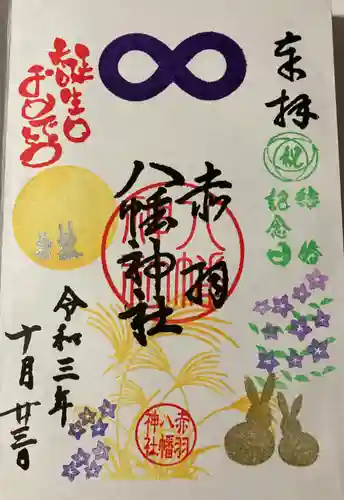 奉拝
祝
結婚
記念日
赤羽
八幡神社
八幡
神社
誕生日
おめでとう
令和三年
十月廿三日
赤羽
八幡
神社